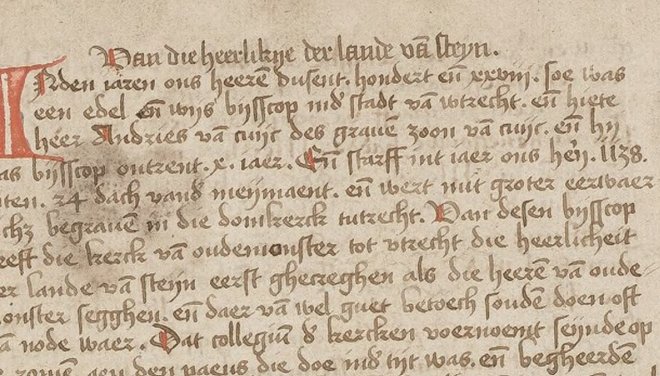 Van die heerlikije der lande vā steyn.
INden iaren ons heerē dusent. hondert eñ xxviij. soe was
een edel eñ wijs bijsscop ind' stadt vā wtrecht. eñ hiete
heer Andries vā cuijc des grauē zoon vā cuijc. eñ hij
as bijsscop ontrent .x. iaer. Eñ starff int iaer ons he'n. 1138.
ten. 24 dach vand' meijmaent. eñ wert mit groter eerwaer
begrauē in die domkerck tutrecht. Van desen bijsscop
eeft die kerck vā oudemonster tot vtrecht die heerlicheit
er lande vā steijn eerst ghecreghen als die heerē vā oude-
onster segghen. eñ daer vā wel guet betoech souden doen oft
node waer. Dat collegiū d' kercken voernoemt seijnde op
aen den paeus die doe ind' tijt was. eñ begheerdē